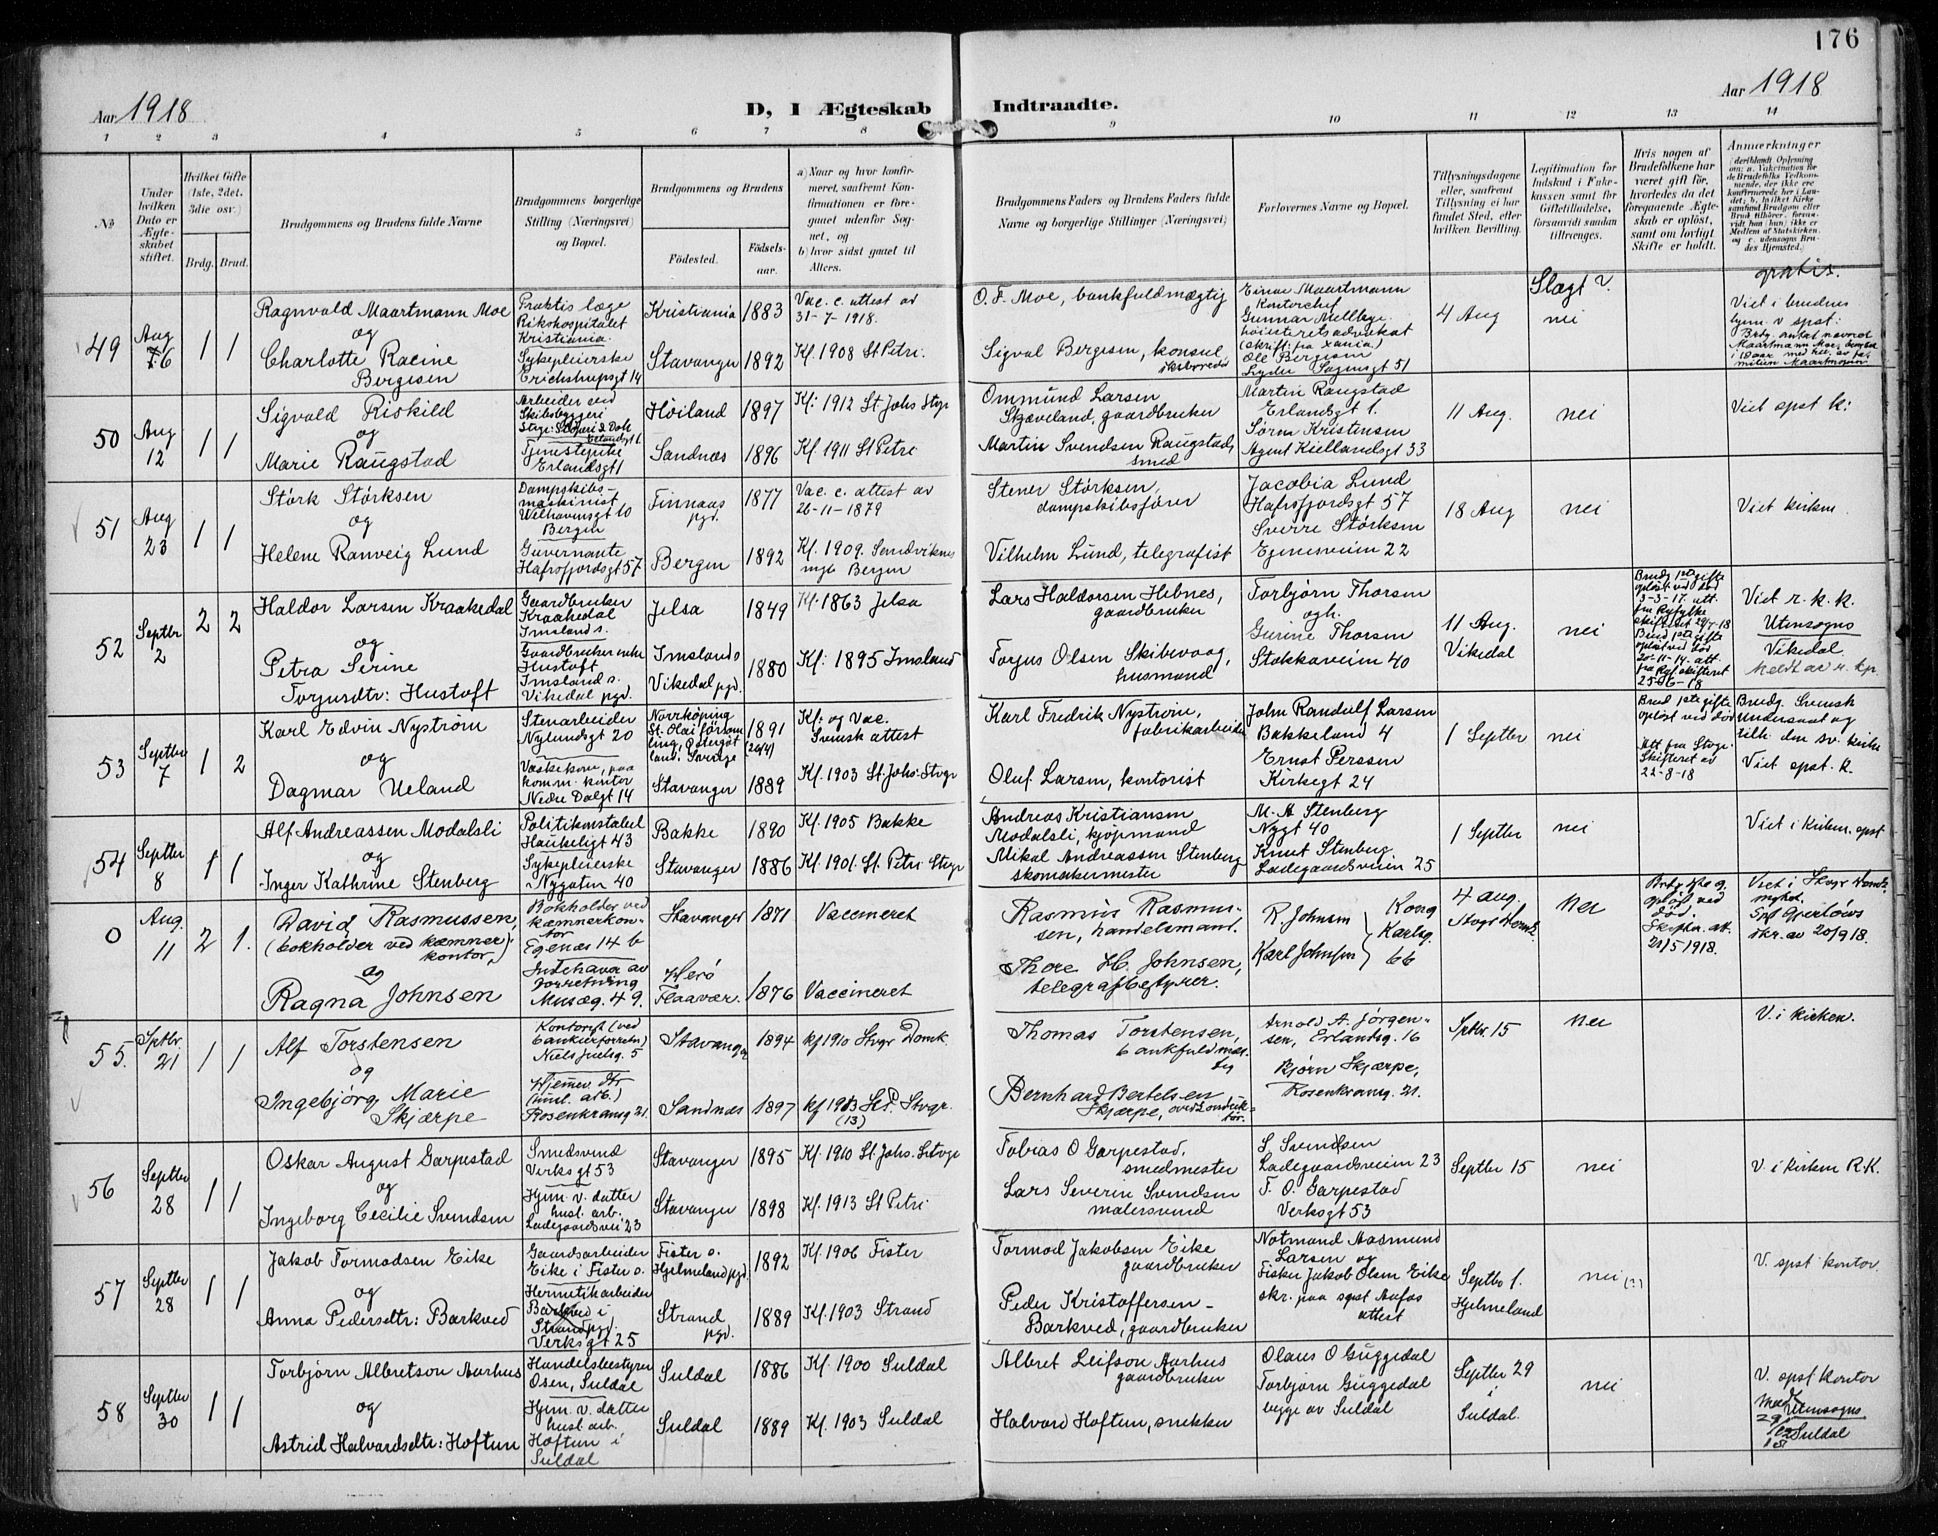 176
Aar 1918
D, I Ægteskab Indtraadte.
Aar 1918
1 2 3 4 5 6 7 8 9 10 11 12 13 14
No
Under hvilken Dato er Ægteskabet stiftet.
Hvilket Gifte (1ste, 2det, 3die osv.)
Brdg. Brud.
Brudgommens og Brudens fulde Navne
Brudgommens borgerlige Stilling (Næringsvei) og Bopæl.
Brudgommens og Brudens
Fødested.
Fødselsaar.
a) Naar og hvor konfirmeret, saafremt Konfirmationen er foregaaet udenfor Sognet, og b) hvor sidst gaaet til Alters.
Brudgommens Faders og Brudens Faders fulde Navne og borgerlige Stillinger (Næringsvei)
Forlovernes Navne og Bopæl.
Tillysningsdagene eller, saafremt Tillysning ei har fundet Sted, efter hvilken Bevilling.
Legitimation for Indskud i Enkekassen samt for Giftetilladelse, forsaavidt saadan tiltrænges.
Hvis nogen af Brudefolkene har været gift før, hvorledes da det foregaaende Ægteskab er opløst, samt om lovligt Skifte er holdt.
Anmærkninger
49
Aug 6
1 1
Ragnvald Maartmann Moe
og
Charlotte Racine
Bergesen
Praktis. læge
Rikshospitalet
Kristiania.
Sykepleierske
Erichstrupsgt 14
Kristiania 1883
Stavanger 1892
Vac. e. attest av
31-7-1918.
Kf. 1908 St Petri.
O. F. Moe, bankfuldmægtig
Sigval Bergesen, konsul,
skibsreder
Einar Maartmann
Kontorchef
Gunnar Mellbye
høiesteretsadvokat
(skrift. fra Xania)
Ole Bergesen
Lyder Sagensgt 51
4 Aug
Slegt ?
nei
gratis.
Viet i brudens
hjem v spst:
50
Aug
12
1 1
Sigvald Riskild
og
Marie Raugstad
Arbeider ved
Skibsbyggeri
Tjenestepike
Erlandsgt 1
Høiland 1897
Sandnæs 1896
Kf: 1912 St Johs Stvgr
Kf 1911 St Petri
Ommund Larsen
Stgaveland, gaardbruker
Martin Svendsen Raugstad,
smed
Martin Raugstad
Erlandsgt 1.
Sørm Kristensen
Agent Kiellandsgt 33
11 Aug.
nei
Viet spst k:
51
Aug
23
1 1
Størk Størksen
og
Helene Ranveig Lund
Dampskibs-
maskinist
Welhavensgt 10
Bergen
Guvernante
Hafrsfjordsgt 57
Finnaas
pgd. 1877
Bergen 1892
Vac. e. attest av
26-11-1879
Kf. 1909. Sandvikens
mgh Bergen
Stener Størksen,
dampskibsfører
Vilhelm Lund, telegrafist
Jacobia Lund
Hafrsfjordsgt 57
Sverre Størksen
Egenesveien 22
18 Aug
nei
Viet kirken.
52
Septbr
2
2 2
Haldor Larsen Kraakedal
og
Petra Serine
Torgersdtr: Hustoft
Gaardbruker
Kraakedal
Imsland s.
Gaardbruker enke
Hustoft
Imsland s.
Vikedal pgd.
Jelsa 1849
Imsland s
Vikedal pgd. 1880
Kf. 1863 Jelsa
Kf: 1895 Imsland
Lars Haldorsen Hebnes,
gaardbruker
Torjus Olsen Skibevaag,
husmand
Torbjørn Thorsen
ogh.
Gurine Thorsen
Stokkaveien 40
11 Aug.
Vikedal
nei
Brudg 1ste gifte
opløst ved død
3-3-17. att.
fra Ryfylke
skifteret 29/7-18
Brud 1ste gifte
opløst ved død
20-11-14. att.
fra Ryf skifteret
25-6-18
Viet r. k. k.
Utensogns
Vikedal.
Meldt av r. kp.
53
Septbr
7
1 2
Karl Edvin Nystrøm
og
Dagmar Ueland
Stenarbeider
Nylundsgt 20
Vaskekone, paa
komm. kontor
Nedre Dalgt 14
Norrköping
St: Olai försam
ling, Östergöt
land, Sverige
1891
(26/4)
Stavanger 1889
Kf: og Vac.
Svensk attest
Kf. 1903 St Johs: Stvgr
Karl Fredrik Nystrøm,
fabrikarbeider
Oluf Larsen, kontorist
John Randulf Larsen
Bakkeland 4
Ernst Perssen
Kirkegt 24
1 Septbr
nei
Brud 1ste gifte
opløst ved død
Att fra Stvgr
Skifteret av
22-8-18
Brudg. Svensk
Undersaat og
tilh. den sv. kirke
Viet spst. k.
54
Septbr
8
1 1
Alf Andreassen Modalsli
og
Inger Kathrine Stenberg
Politikonstabel
Haukeligt 43
Sykepleierske
Nygaten 40
Bakke 1890
Stavanger 1886
Kf. 1905 Bakke
Kf. 1901. St. Petri Stvgr
Andreas Kristiansen
Modalsli, kjøpmand
Mikal Andreassen Stenberg
skomakermester
M. A Stenberg
Nygt 40
Knut Stenberg
Ladegaardsveien 25
1 Septbr
nei
Viet i Kirken. spst
0
Aug.
11
2 1.
David Rasmussen,
(bokholder ved kæmner-
kontor,)
og
Ragna Johnsen
Bokholder ved
kæmnerkon-
tor
Egenæs 14 b
Indehaver av
forretning
Musæg. 49.
Stavanger 1871
Herø
Flaavær. 1876
Vaccineret
Vaccineret
Rasmus Rasmus-
sen, handelsmand.
Thore H. Johnsen,
telegrafbestyrer.
R. Johnsen
Karl Johnsen
Kong
Karlsg.
66
4 aug.
Stvgr Domk.
Nei
opløst ved
død.
Skifter. att.
21/5 1918.
Viet i Stvgr Domk.
myhet.
Spr Gjerløws
skr. av 20/9 18.
55.
Sptbr.
21
1 1
Alf Torstensen
og
Ingebjørg Marie
Skjærpe
Kontorist (ved
bankierforretn)
Niels Juelsg. 5
Hjemmev. dtr
(husl. arb.)
Rosenkransg 21.
Stavanger 1894
Sandnæs 1897
kf 1910 Stvgr Domk.
kf 1913 St P. Stvgr.
(13)
Thomas Torstensen,
bankfuldmæg-
tig
Bernhard Bertelsen
Skjærpe,
Arnold A. Jørgen-
sen, Erlandsg. 16
Bjørn Skjærpe,
Rosenkransg. 21.
Sptbr. 15
Nei
V. i kirken.
56
Septbr
28
1 1
Oskar August Garpestad
og
Ingeborg Cecilie Svendsen
Smedsvend
Verksgt 53
Hjem. v. datter
husl. arb.
Ladegaardsvei 23
Stavanger 1895
Stavanger 1898
Kf. 1910 St Johs. Stvgr
Kf. 1913 St Petri
Tobias O Garpestad,
smedmester
Lars Severin Svendsen
malersvend
S Svendsen
Ladegaardsveien 23
T. O. Garpestad
Verksgt 53
Septbr 15
nei
V. i kirken R.K.
57
Septbr
28
1 1
Jakob Tormodsen Eike
og
Anna Pedersdtr: Barkved
Gaardsarbeider
Eike i Fister s.
Hermetikarbeider
Barkved i
Strand pgd.
Verksgt 25
Fister s.
Hjelmeland pgd. 1892
Strand
pgd. 1889
Kf. 1906 Fister
Kf. 1903 Strand
Tormod Jakobsen Eike
gaardbruker
Peder Kristoffersen -
Barkved, gaardbruker
Notmand Aasmund
Larsen og
Fisker Jakob Olsen Eike
skr. paa spst Aafos
attest
Septbr 1.
Hjelmeland
nei (?)
V. spst kontor
58
Septbr
30
1 1
Torbjørn Albretson Aarhus
og
Astrid Halvardsdtr: Hoftun
Handelsbestyrer
Osen, Suldal
Hjem. v. datter
husl. arb.
Hoftun i
Suldal
Suldal 1886
Suldal 1889
Kf. 1900 Suldal
Kf. 1903 Suldal
Albret Leifson Aarhus
gaardbruker
Halvard Hoftun, snekker
Olaus O Guggedal
Torbjørn Guggedal
begge av Suldal
Septbr 29
i
Suldal.
nei
V. spst kontor
Utensogns
Suldal